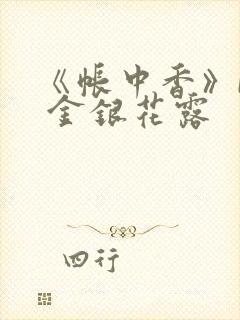 《帐中香》
金银花露
四行